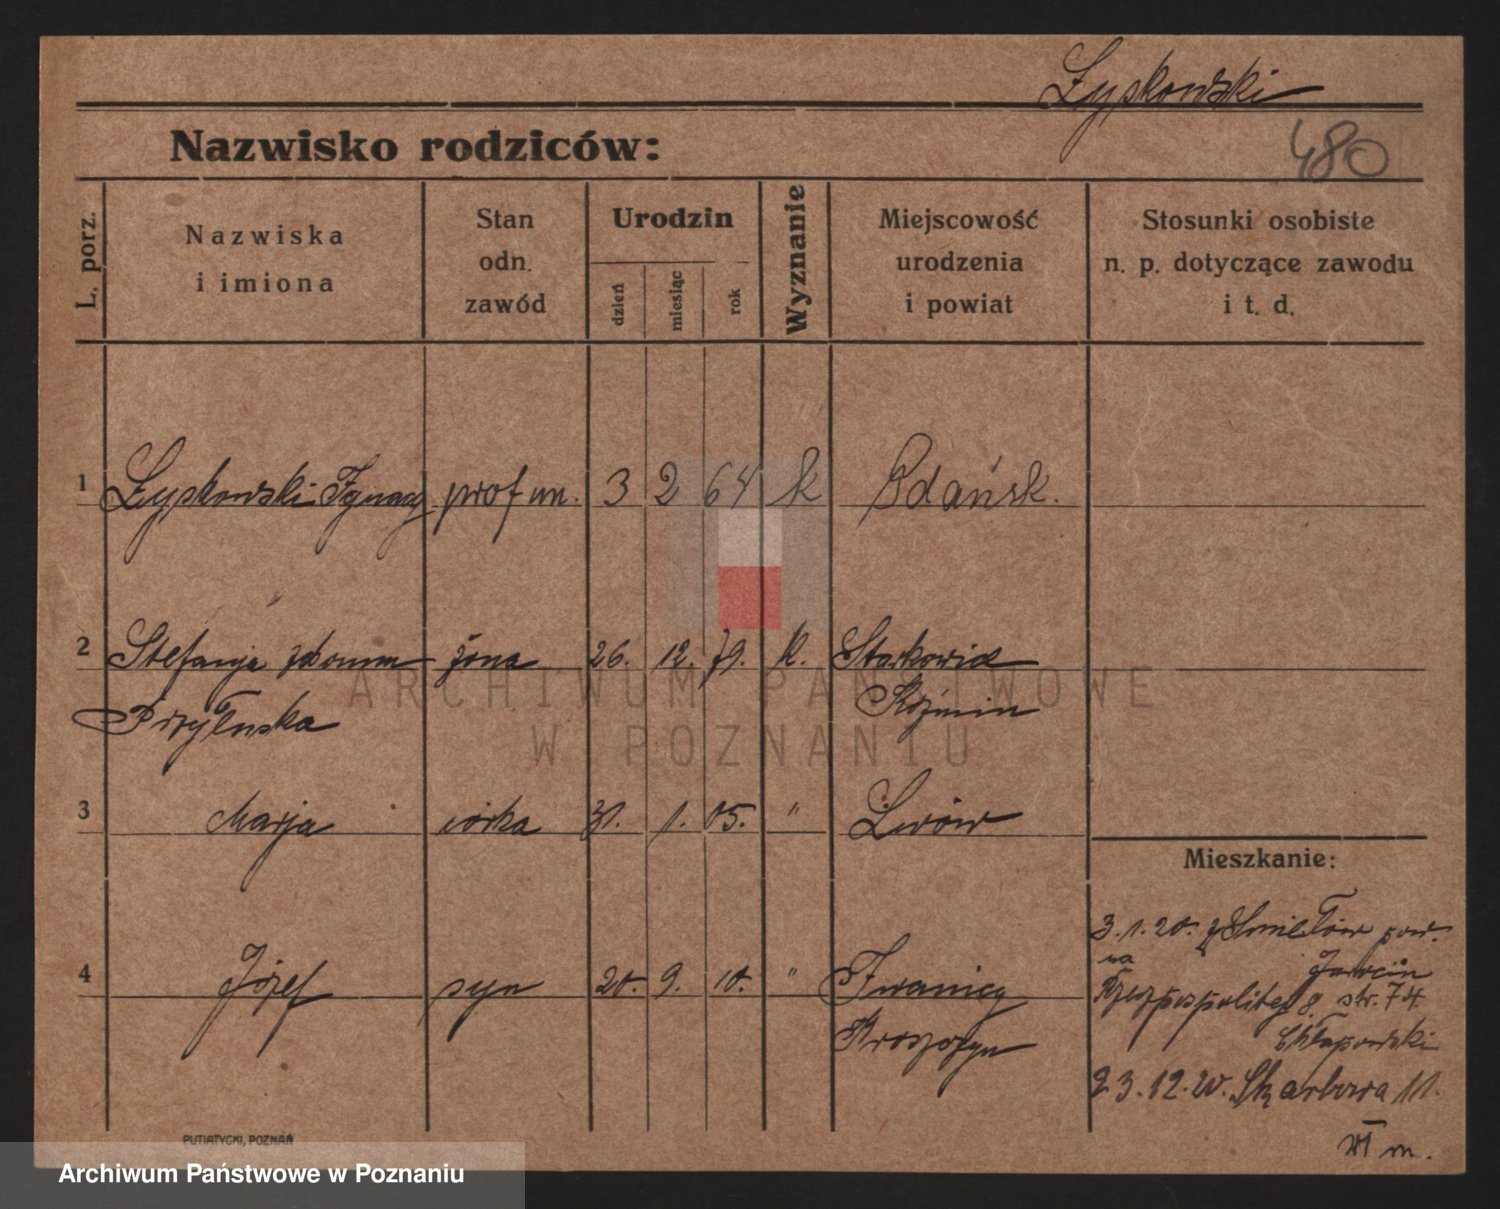 Łyskowski
480
Nazwisko rodziców:
L. porz.
Nazwiska
i imiona
Stan
odn.
zawód
Urodzin
dzień
miesiąc
rok
Wyznanie
Miejscowość
urodzenia
i powiat
Stosunki osobiste
n. p. dotyczące zawodu
i t. d.
1 Łyskowski Ignacy prof un. 3 2 64 k Gdańsk.
2 Stefanja z domu żona 26. 12. 79. k.
Przyłuska Koźmin
3 Marja córka 31. 1. 05. " Lwów
Mieszkanie:
3.1.20. z Śmiełów pow.
na Jarocin
4 Józef syn 20. 9. 10. "
Rzeczpospolitej 8. str. 74.
Krotoszyn Chłapowski
23.12.20. Skarbowa 11.
VI m.
PUTIATYCKI, POZNAŃ
ARCHIWUM PAŃSTWOWE
W POZNANIU
Archiwum Państwowe w Poznaniu